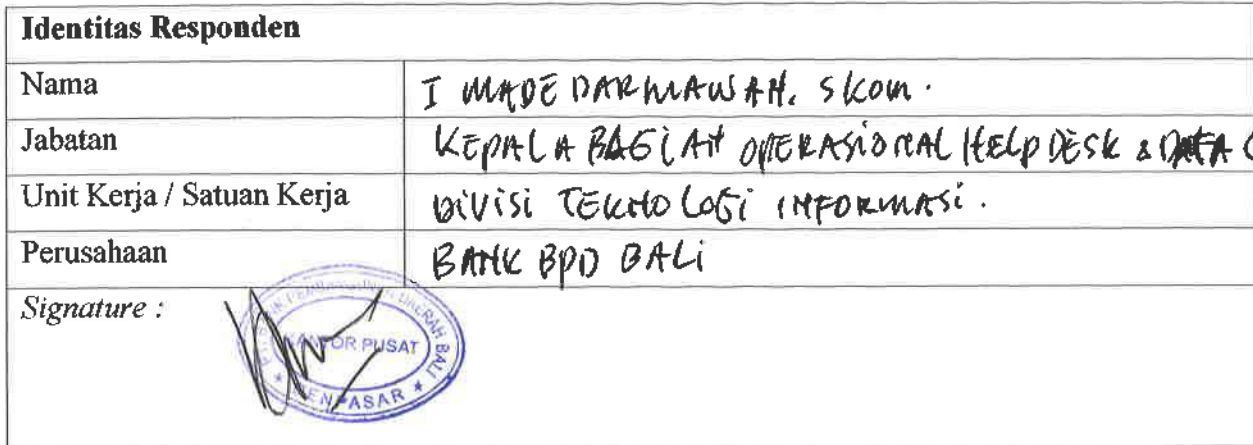 Identitas Responden
Nama I MADE DARMAWAN. SKom.
Jabatan KEPALA BAGIAN OPERASIONAL HELPDESK & DATA C
Unit Kerja / Satuan Kerja DIVISI TEKNOLOGI INFORMASI.
Perusahaan BANK BPD BALI
Signature :
PT. BANK PEMBANGUNAN DAERAH BALI
KANTOR PUSAT
DENPASAR